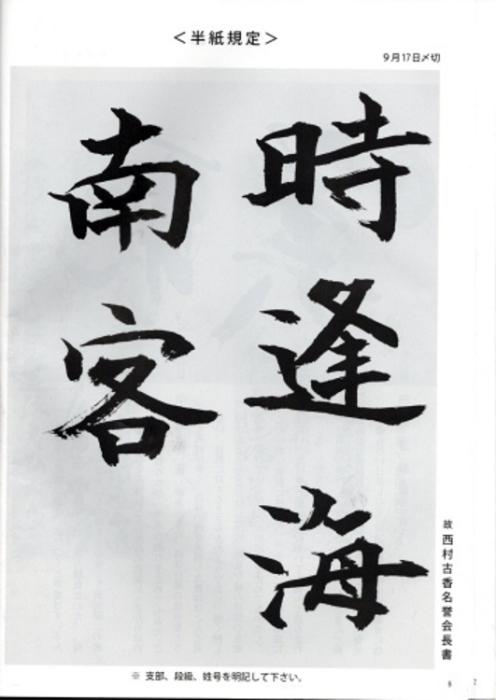 ＜半紙規定＞
9月17日〆切
時逢海
南客
故 西村古香名誉会長書
※ 支部、段級、姓号を明記して下さい。